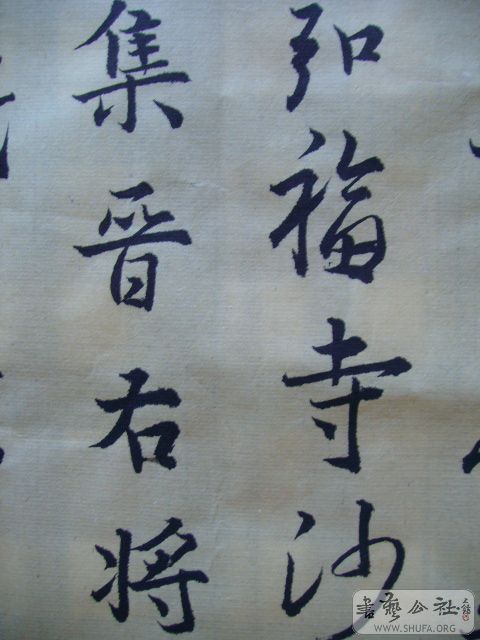 弘福寺沙
集晋右将
書藝公社
WWW.SHUFA.ORG